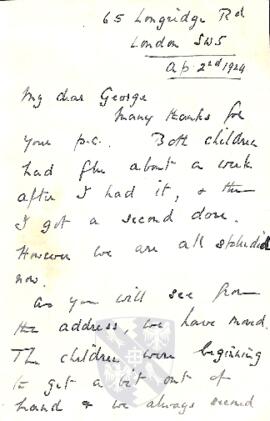 65 Longridge Rd
London SW5
Ap. 2nd 1924.
My dear George
Many thanks for
your p.c. Both children
had flu about a week
after I had it, & then
I got a second dose.
However we are all splendid
now.
As you will see from
the address, we have moved.
The children were beginning
to get a bit out of
hand & we always